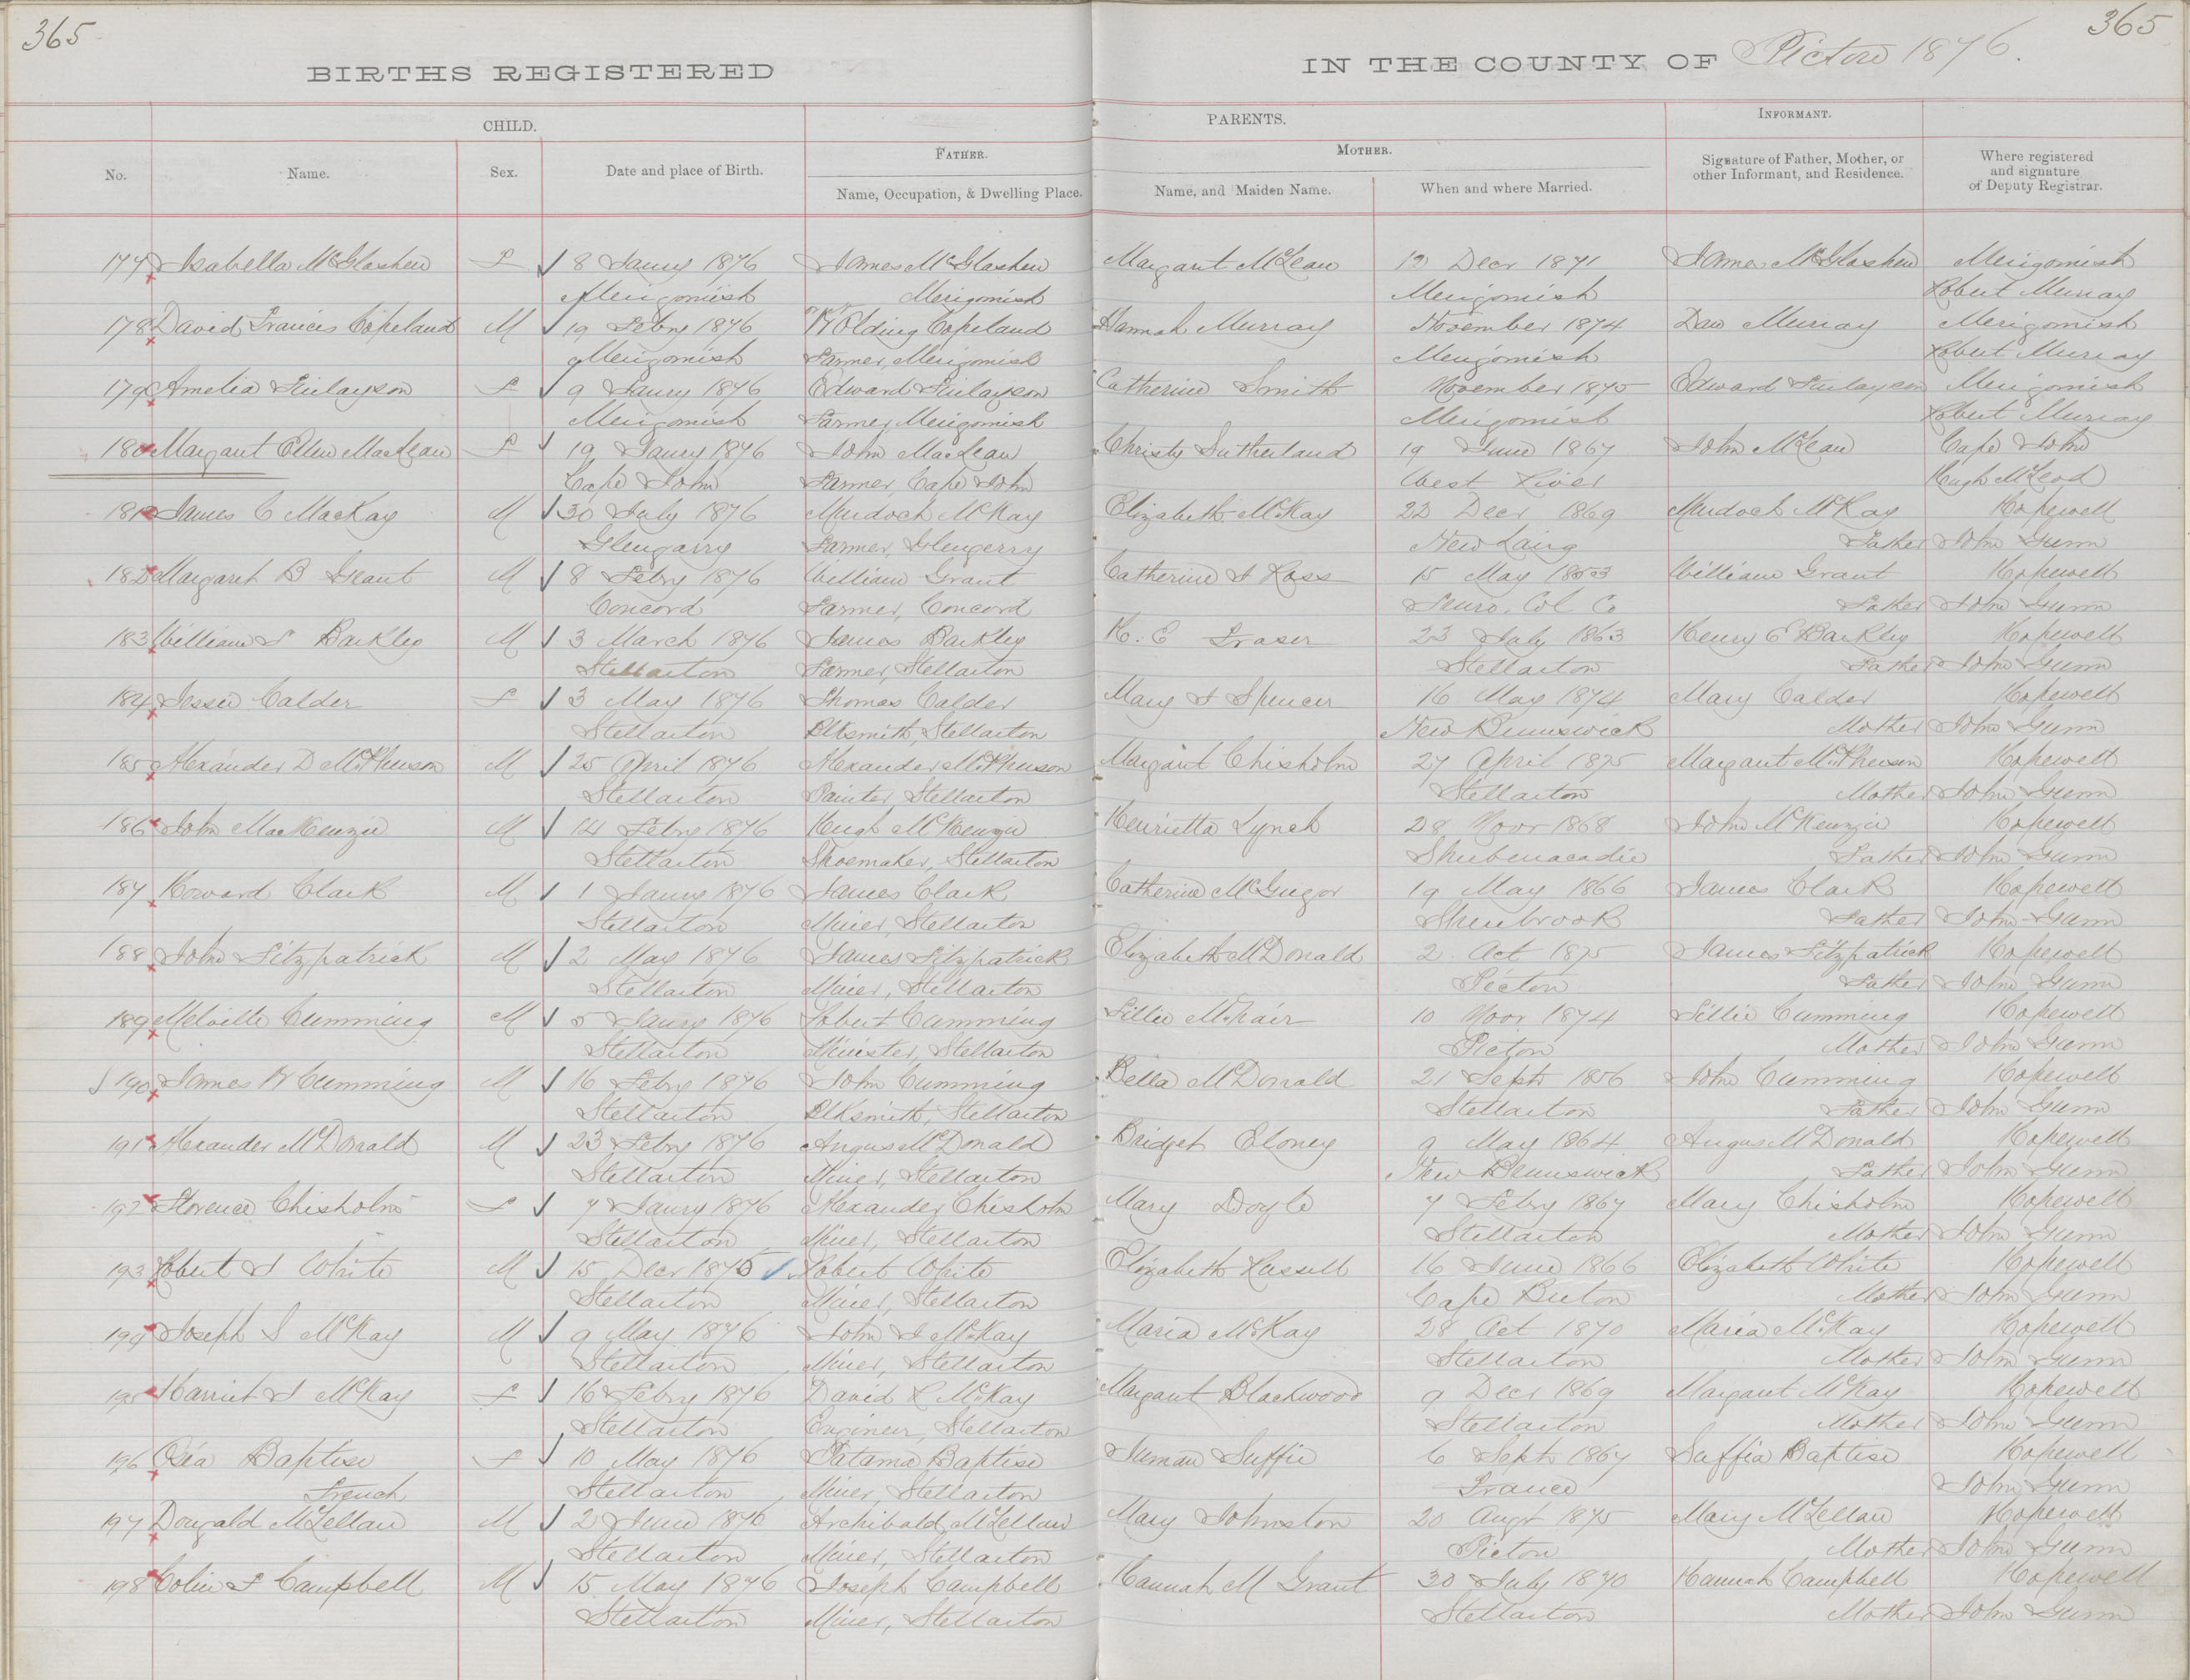 365
365
BIRTHS REGISTERED IN THE COUNTY OF Pictou 1876.
CHILD. PARENTS. INFORMANT.
No. Name. Sex. Date and place of Birth. FATHER. Name, Occupation, & Dwelling Place. MOTHER. Name, and Maiden Name. When and where Married. Signature of Father, Mother, or other Informant, and Residence. Where registered and signature of Deputy Registrar.
177 Isabella McGlashen F 8 Jany 1876 James McGlashen Margaret McLean 12 Decr 1871 James McGlashen Merigomish
Merigomish Merigomish Merigomish Robert Murray
178 David Francis Copeland M 19 Febry 1876 Holding Copeland Hannah Murray November 1874 Murray Merigomish
Merigomish Farmer, Merigomish Merigomish Robert Murray
179 Amelia Finlayson F 9 Janry 1876 Edward Finlayson Catherine Smith November 1875 Edward Finlayson Merigomish
Merigomish Farmer, Merigomish Merigomish Robert Murray
180 Margaret Ellen MacLean F 19 Janry 1876 John MacLean Christy Sutherland 19 June 1867 John McLean Cape John
Cape John Farmer, Cape John West River Hugh McLeod
181 James C MacKay M 30 July 1876 Murdoch McKay Elizabeth McKay 22 Decr 1869 Murdoch McKay Hopewell
Glengarry Farmer, Glengerry New Laing Father John Gunn
182 Margaret B Grant M 8 Febry 1876 William Grant Catherine Ross 15 May William Grant Hopewell
Concord Farmer, Concord Truro, Col Co Father John Gunn
183 William Barkley M 3 March 1876 James Barkley H. E Fraser 23 July 1863 Henry E Barkley Hopewell
Stellarton Farmer, Stellarton Stellarton Father John Gunn
184 Jessie Calder F 3 May 1876 Thomas Calder Mary Spencer 16 May 1874 Mary Calder Hopewell
Stellarton Blksmith, Stellarton New Brunswick Mother John Gunn
185 Alexander D McPherson M 25 April 1876 Alexander McPherson Margaret Chisholm 27 April 1875 Margaret McPherson Hopewell
Stellarton Painter, Stellarton Stellarton Mother John Gunn
186 John MacKenzie M 14 Febry 1876 Hugh McKenzie Henrietta Lynch 28 Novr 1868 John McKenzie Hopewell
Stellarton Shoemaker, Stellarton Shubenacadie Father John Gunn
187 Howard Clark M 1 Janry 1876 James Clark Catherine McGregor 19 May 1866 James Clark Hopewell
Stellarton Miner, Stellarton Sherbrook Father John Gunn
188 John Fitzpatrick M 2 May 1876 James Fitzpatrick Elizabeth McDonald 2 Oct 1875 James Fitzpatrick Hopewell
Stellarton Miner, Stellarton Pictou Father John Gunn
189 Melville Cumming M 5 Janry 1876 Robert Cumming Lillie McNair 10 Novr 1874 Lillie Cumming Hopewell
Stellarton Minister, Stellarton Pictou Mother John Gunn
190 James W Cumming M 16 Febry 1876 John Cumming Bella McDonald 21 Sept 1856 John Cumming Hopewell
Stellarton Blksmith, Stellarton Stellarton Father John Gunn
191 Alexander McDonald M 23 Febry 1876 Angus McDonald Bridget Eloney 9 May 1864 Angus McDonald Hopewell
Stellarton Miner, Stellarton New Brunswick Father John Gunn
192 Florence Chisholm F 7 Janry 1876 Alexander Chisholm Mary Doyle 7 Febry 1867 Mary Chisholm Hopewell
Stellarton Miner, Stellarton Stellarton Mother John Gunn
193 Robert White M 15 Decr 1875 Robert White Elizabeth Russell 16 June 1866 Elizabeth White Hopewell
Stellarton Miner, Stellarton Cape Breton Mother John Gunn
194 Joseph McKay M 9 May 1876 John McKay Maria McKay 28 Oct 1870 Maria McKay Hopewell
Stellarton Miner, Stellarton Stellarton Mother John Gunn
195 Harriet McKay F 16 Febry 1876 David R McKay Margaret Blackwood 9 Decr 1869 Margaret McKay Hopewell
Stellarton Engineer, Stellarton Stellarton Mother John Gunn
196 Baptise F 10 May 1876 Patama Baptise Suffie 6 Sept 1867 Suffia Baptise Hopewell
French Stellarton Miner, Stellarton France John Gunn
197 Dougald McLellan M 2 June 1876 Archibald McLellan Mary Johnston 20 Augt 1875 Mary McLellan Hopewell
Stellarton Miner, Stellarton Pictou Mother John Gunn
198 Colin F Campbell M 15 May 1876 Joseph Campbell Hannah M Grant 30 July 1870 Hannah Campbell Hopewell
Stellarton Miner, Stellarton Stellarton Mother John Gunn